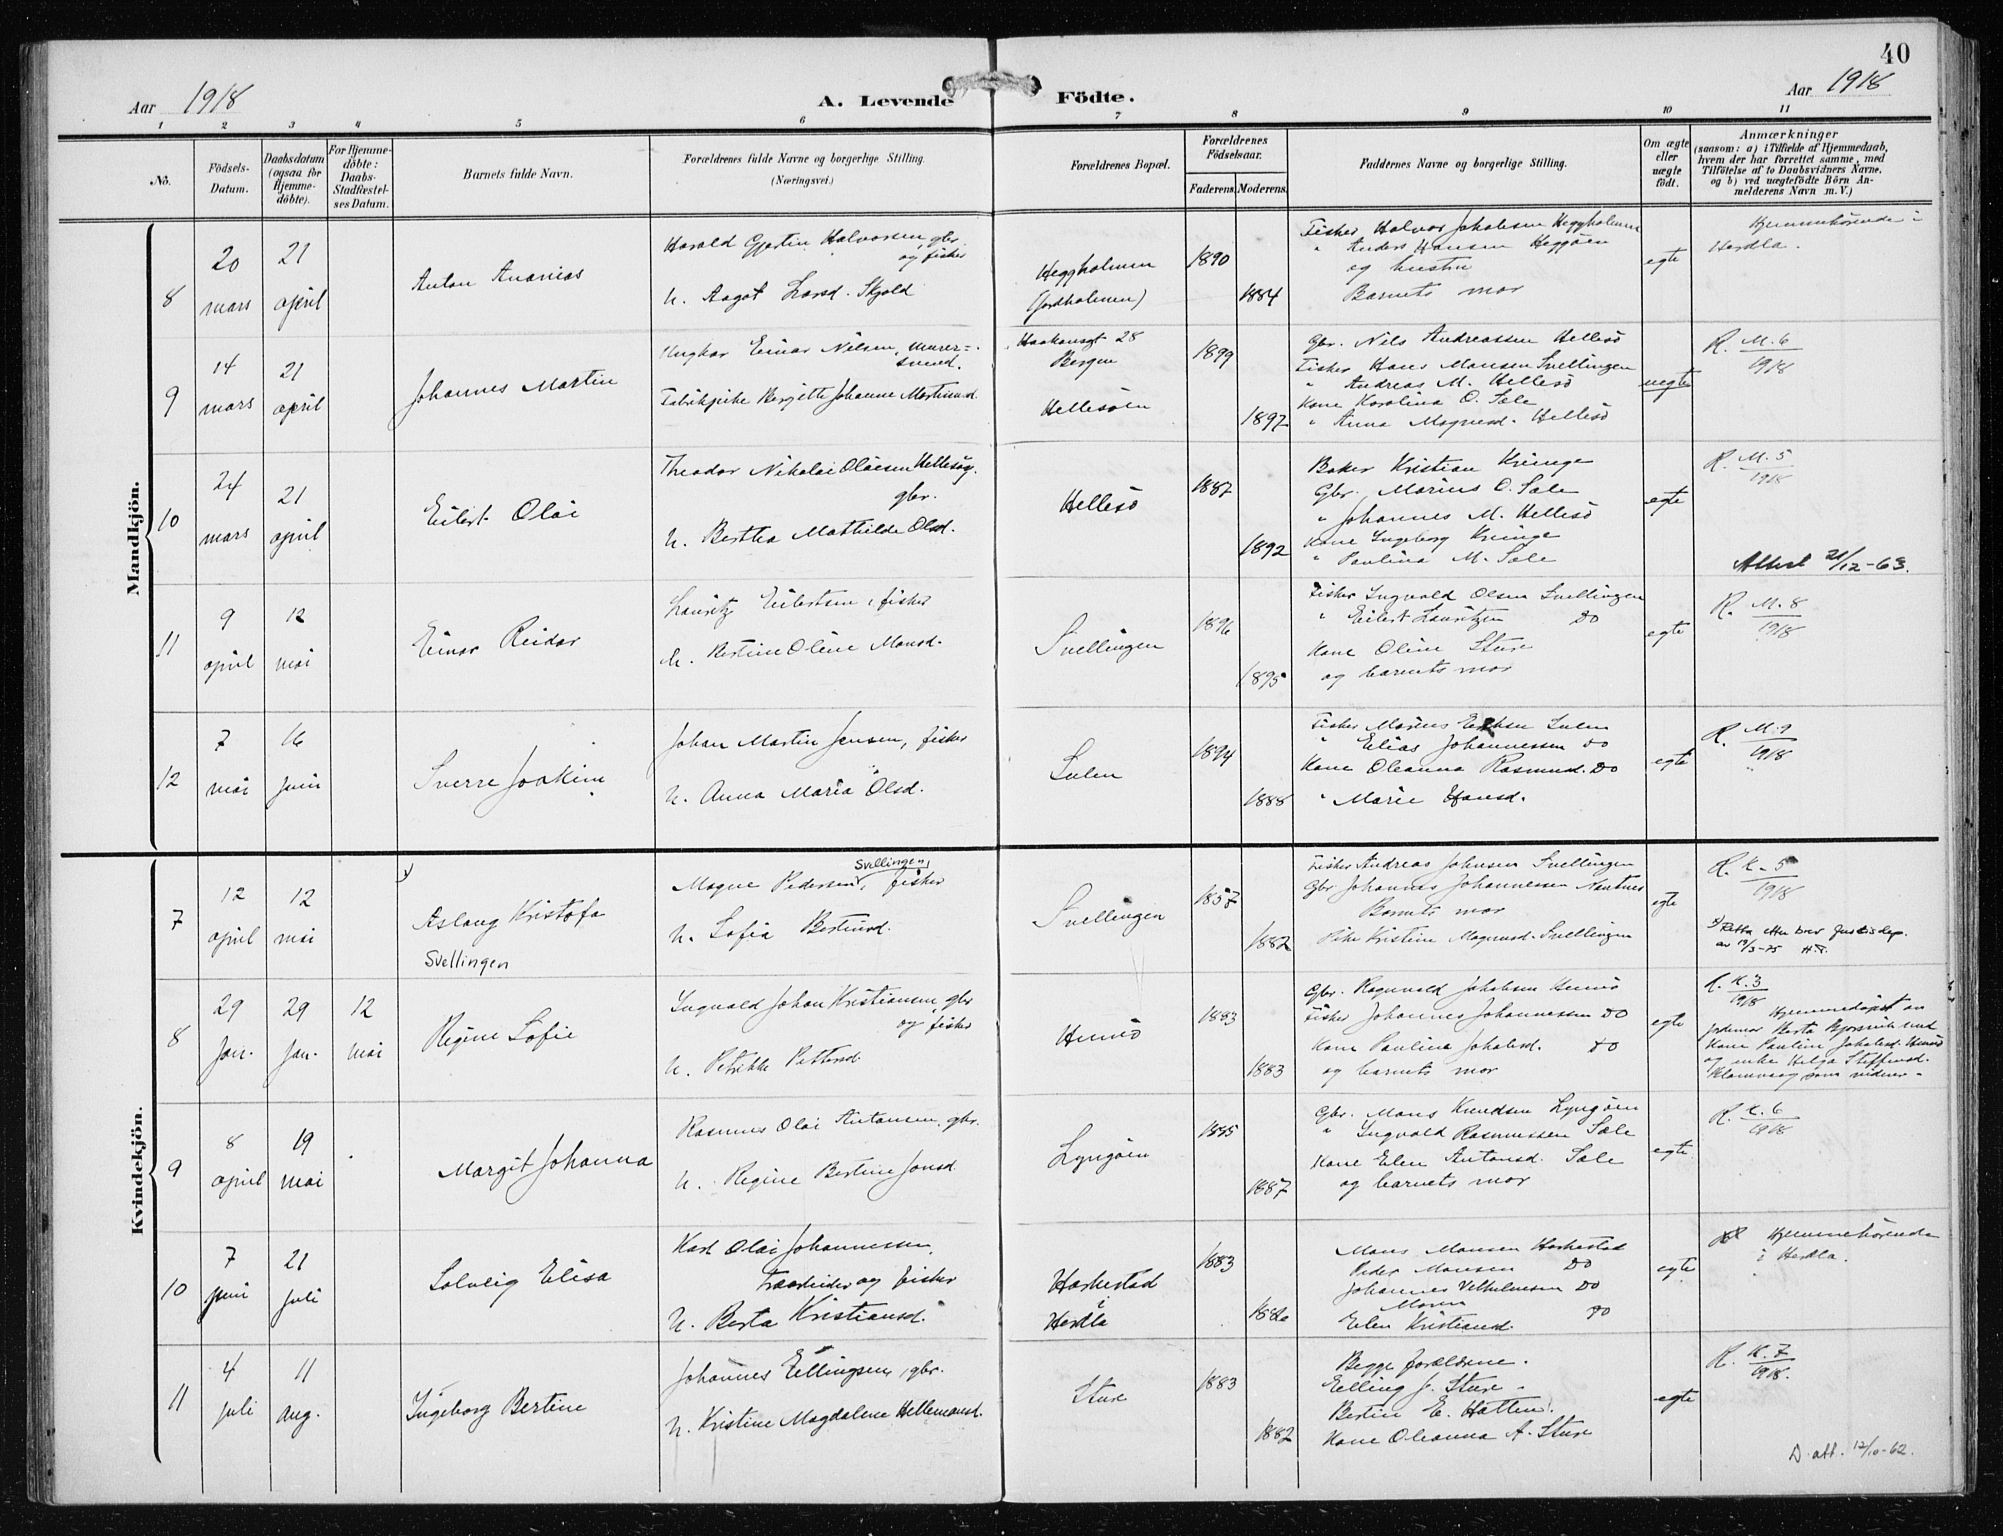 40
Aar 1918
A. Levende Födte.
Aar 1918
1 2 3 4 5 6 7 8 9 10 11
No.
Födsels-
Datum.
Daabsdatum
(ogsaa for
Hjemme-
döbte).
For Hjemme-
döbte:
Daabs-
Stadfæstel-
ses Datum.
Barnets fulde Navn.
Forældrenes fulde Navne og borgerlige Stilling.
(Næringsvei.)
Forældrenes Bopæl.
Forældrenes
Födselsaar.
Faderens. Moderens.
Faddernes Navne og borgerlige Stilling.
Om ægte
eller
uægte
födt.
Anmærkninger
(saasom: a) i Tilfælde af Hjemmedaab,
hvem der har forrettet samme, med
Tilföielse af to Daabsvidners Navne,
og b) ved uægtefödte Börn An-
melderens Navn m. V.)
Mandkjön.
8
20
mars
21
april
Anton Ananias
Harald Gjertin Halvorsen, gbr.
og fisker
h. Aagot Larsd. Skjold
Heggholmen
(Jordholmen)
1890
1884
Fisker Halvor Johansen Heggholmen
" Anders Hansen Heggöen
og hustru
Barnets mor
egte
Hjemmehörende i
Herdla.
9
14
mars
21
april
Johannes Martin
Ungkar Einar Nilsen, murer-
svend.
Fabrikpike Bergitte Johanne Martinusd.
Haakonsgt 28
Bergen
Hellesöen
1899
1897
Gbr. Nils Andreassen Hellesö
Fisker Hans Monsen Svellingen
" Andreas M. Hellesö
Kone Karolina O. Sæle
" Anna Magnusd. Hellesö
uegte
R. M. 6
1918
10
24
mars
21
april
Eilert Olai
Theodor Nikolai Olaisen Hellesöy.
gbr.
h. Bertha Mathilde Olsd.
Hellesö
1887
1892
Baker Kristian Kringe
Gbr. Marius O. Sæle
" Johannes M. Hellesö
Kone Ingeborg Kringe
" Paulina M. Sæle
egte
R. M. 5
1918
Attest 21/12-63.
11
9
april
12
mai
Einar Reidar
Lauritz Eilertsen, fisker
h. Bertine Oline Monsd.
Svellingen
1896
1895
Fisker Ingvald Olsen Svellingen
" Eilert Lauritzen Do
Kone Oline Sture
og barnets mor
egte
R. M. 8
1918
12
7
mai
16
juni
Sverre Joakim
Johan Martin Jensen, fisker
h. Anna Maria Olsd.
Sulen
1894
1888
Fisker Marius Sulen
" Elias Johannessen do
Kone Oleanna Rasmusd. Do
" Marie Hansd.
egte
R. M. 9
1918
Kvindekjön.
7
12
april
12
mai
Aslaug Kristofa
Svellingen
Svellingen,
Magne Pedersen, fisker
h. Sofia Bertinsd.
Svellingen
1857
1882
Fisker Andreas Johnsen Svellingen
Gbr Johannes Johannessen
Barnets mor
Pike Kristine Magnusd. Svellingen
egte
R. K. 5
1918
Retta etter brev Justisdep.
av 19/3-75 H.T.
8
29
jan.
29
jan.
12
mai
Regine Sofie
Ingvald Johan Kristiansen, gbr
og fisker
h. Petrikke Pettersd.
Hernö
1883
1883
Gbr. Ragnvald Jakobsen Hernö
Fisker Johannes Johannessen Do
Kone Paulina Jakobsd. Do
og barnets mor
egte
R. K. 3
1918
Hjemmedöpt av
jordmor Marta med
Kone Pauline Jakobsd. Hernö
og enke Helga Steffensd.
som vidner.
9
8
april
19
mai
Margit Johanna
Rasmus Olai Antonsen, gbr.
h. Regine Bertine Jonsd
Lyngöen
1885
1887
Gbr. Mons Knudsen Lyngöen
" Ingvald Rasmussen Sæle
Kone Elen Antonsd. Sæle
og barnets mor
egte
R. K. 6
1918
10
7
juni
21
juli
Solveig Elisa
Karl Olai Johannessen,
og fisker
h. Berta Kristiansd.
Harkestad
i
Herdla
1883
1886
Mons Monsen Harkestad
Peder Monsen Do
Johannes Vilhelmsen Do
Moren
Elen Kristiansd. Do
egte
Hjemmehörende
i Herdla.
11
4
juli
11
aug.
Ingeborg Bertine
Johannes Ellingsen, gbr.
h. Kristine Magdalene Hellemansd.
Sture
1883
1882
Begge forældrene.
Elling J. Sture
Bertin E. Hatten.
Kone Oleanna A. Sture
egte
R. K. 7
1918.
D. att. 12/10-62.